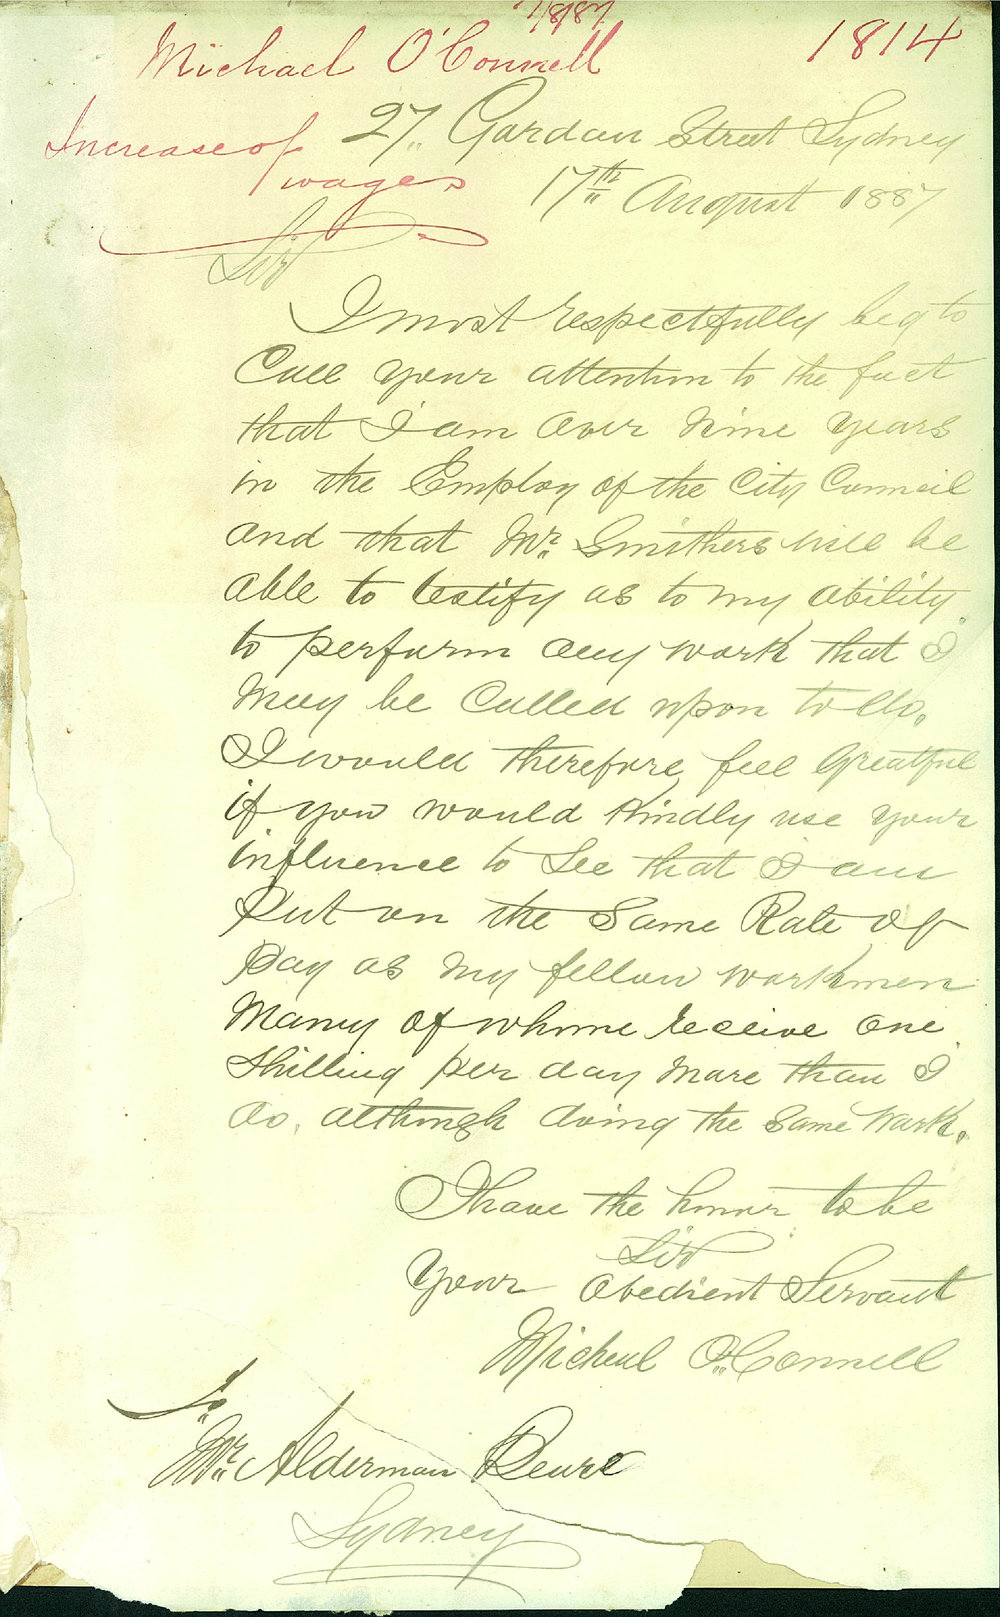 7/8/87
Michael O'Connell 1814
Increase of
wages
27 Gordon Street Sydney
17th August 1887
Sir
I most respectfully beg to
Call your attention to the fact
that I am over nine years
in the Employ of the City Council
and that Mr. Smithers will be
able to testify as to my ability
to perform any work that I
may be Called upon to do.
I would therefore feel Greatful
if you would kindly use your
influence to See that I am
Put on the Same Rate of
Pay as my fellow workmen
Many of whome receive one
Shilling per day more than I
do, although doing the same work.
I have the honor to be
Sir
Your Obedient Servant
Micheal O'Connell
To
Mr. Alderman
Sydney